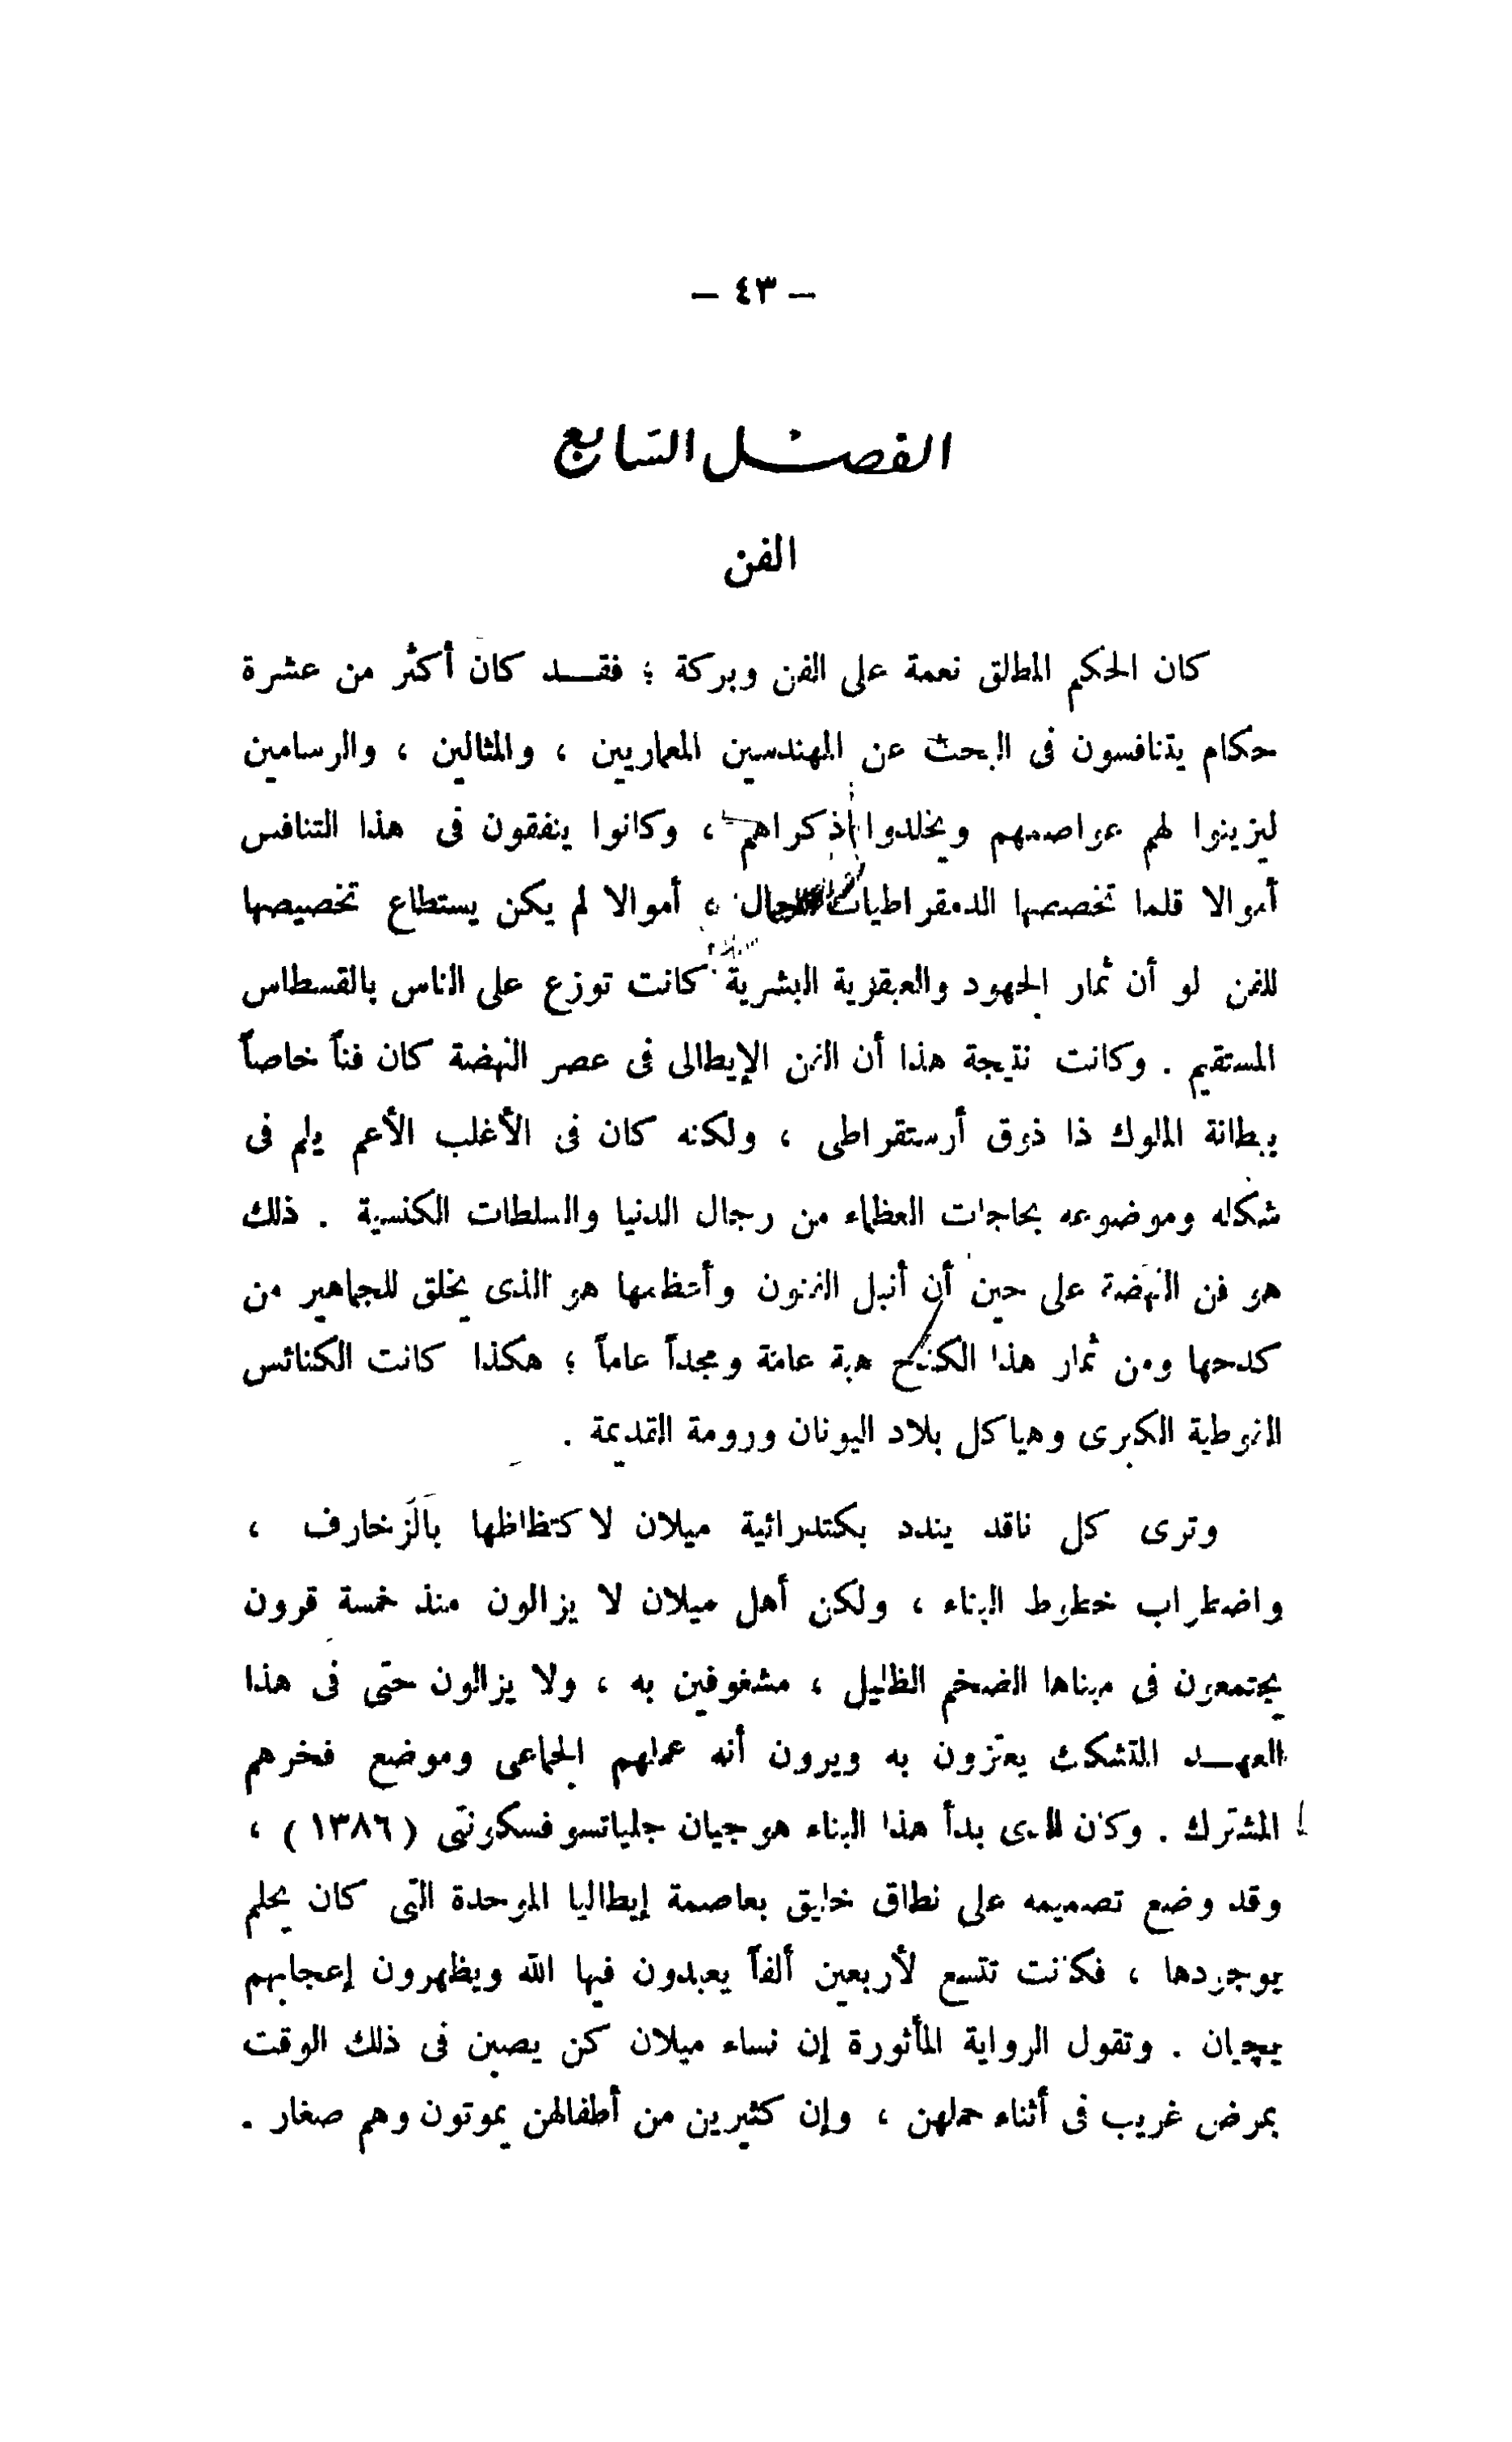 – ٤٣ –
الفصل السابع
الفن
كان الحكم المطلق نعمة على الفن وبركة ؛ فقد كان أكثر من عشرة
حكام يتنافسون فى البحث عن المهندسين المعاريين ، والمثالين ، والرسامين
ليزينوا لهم عواصمهم ويخلدوا ذكراهم ، وكانوا ينفقون فى هذا التنافس
أموالا قلما تخصصها الدمقراطيات للجمال ، أموالا لم يكن يستطاع تخصيصها
للفن لو أن ثمار الجهود والعبقرية البشرية كانت توزع على الناس بالقسطاس
المستقيم . وكانت نتيجة هذا أن الفن الإيطالى فى عصر النهضة كان فناً خاصاً
ببطانة الملوك ذا ذوق أرستقراطى ، ولكنه كان فى الأغلب الأعم يلم فى
شكله وموضوعه بحاجات العظماء من رجال الدنيا والسلطات الكنسية . ذلك
هو فن النهضة على حين أن أنبل الفنون وأعظمها هو الذى يخلق للجماهير من
كدحها ومن ثمار هذا الكدح هبة عامة ومجداً عاماً ؛ هكذا كانت الكنائس
القوطية الكبرى وهياكل بلاد اليونان ورومة القديمة .
وترى كل ناقد يندد بكتدرائية ميلان لاكتظاظها بالزخارف ،
واضطراب خطوط البناء ، ولكن أهل ميلان لا يزالون منذ خمسة قرون
يجتمعون فى مبناها الضخم الظليل ، مشغوفين به ، ولا يزالون حتى فى هذا
العهد المتشكك يعتزون به ويرون أنه عملهم الجماعى وموضع فخرهم
المشترك . وكان الذى بدأ هذا البناء هو جيان جلياتسو فسكونتى ( ١٣٨٦ ) ،
وقد وضع تصميمه على نطاق خليق بعاصمة إيطاليا الموحدة التى كان يحلم
بوجودها ، فكانت تتسع لأربعين ألفاً يعبدون فيها الله ويظهرون إعجابهم
بجيان . وتقول الرواية المأثورة إن نساء ميلان كن يصبن فى ذلك الوقت
بمرض غريب فى أثناء حملهن ، وإن كثيرين من أطفالهن يموتون وهم صغار .